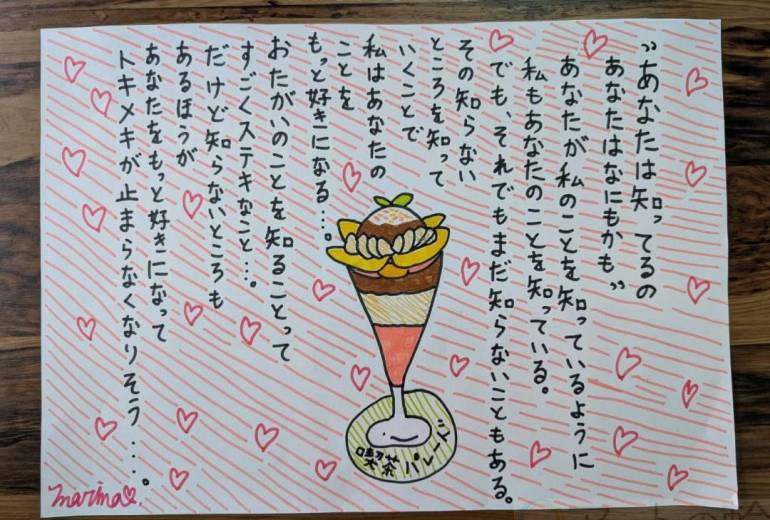 〝あなたは知ってるの
あなたはなにもかも〟
あなたが私のことを知っているように
私もあなたのことを知っている。
でも、それでもまだ知らないこともある。
その知らない
ところを知って
いくことで
私はあなたの
ことを
もっと好きになる…。
おたがいのことを知ることって
すごくステキなこと…。
だけど知らないところも
あるほうが
あなたをもっと好きになって
トキメキが止まらなくなりそう….。
喫茶パレット
marina